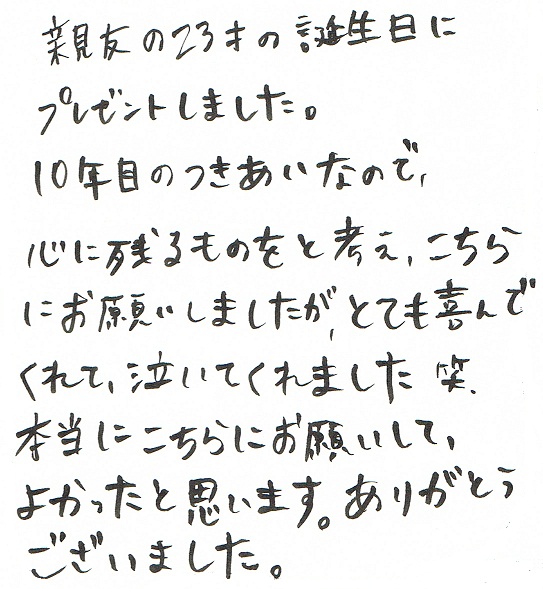 親友の23才の誕生日に
プレゼントしました。
10年目のつきあいなので、
心に残るものをと考え、こちら
にお願いしましたが、とても喜んで
くれて、泣いてくれました 笑、
本当にこちらにお願いして、
よかったと思います。ありがとう
ございました。